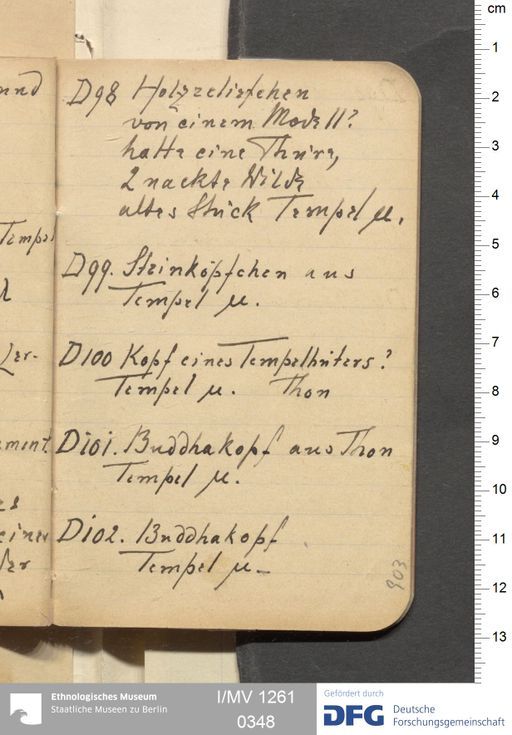 D98 Holzreliefchen
von einem Modell?
hatte eine Thüre,
2 nackte Wilde
altes Stück Tempel µ.
D99. Steinköpfchen aus
Tempel µ.
D100 Kopf eines Tempelhüters?
Tempel µ. Thon
D101. Buddhakopf aus Thon
Tempel µ.
D102. Buddhakopf
Tempel µ.
903
cm
1
2
3
4
5
6
7
8
9
10
11
12
13
Ethnologisches Museum
Staatliche Museen zu Berlin
I/MV 1261
0348
Gefördert durch
DFG Deutsche
Forschungsgemeinschaft